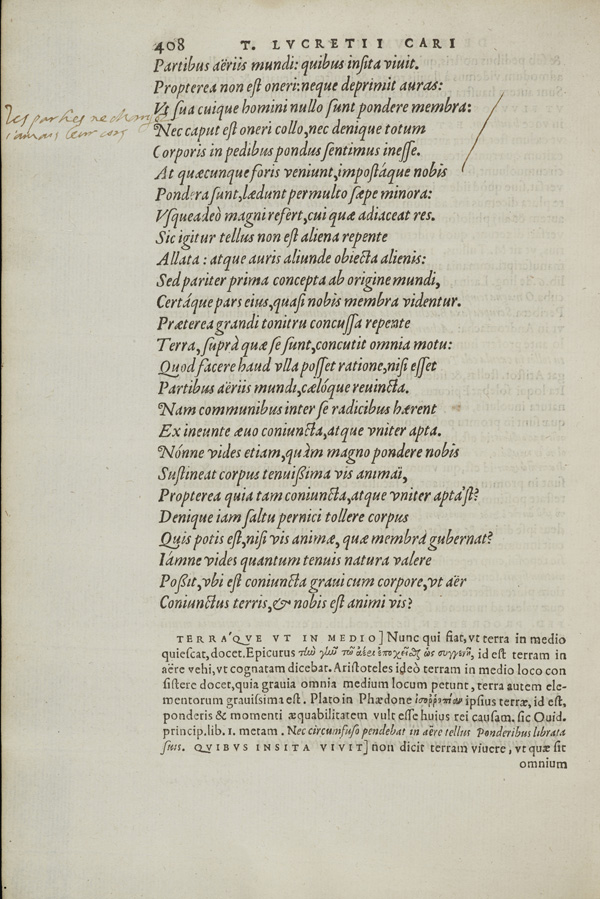 408 T. LVCRETII CARI
Partibus aëriis mundi: quibus insita viuit.
Propterea non est oneri: neque deprimit auras:
Vt sua cuique homini nullo sunt pondere membra:
Les parties ne
jamais leur cors
Nec caput est oneri collo, nec denique totum
Corporis in pedibus pondus sentimus inesse.
At quæcunque foris veniunt, impostáque nobis
Pondera sunt, lædunt permulto sæpe minora:
Vsqueadeò magni refert, cui quæ adiaceat res.
Sic igitur tellus non est aliena repente
Allata: atque auris aliunde obiecta alienis:
Sed pariter prima concepta ab origine mundi,
Certáque pars eius, quasi nobis membra videntur.
Præterea grandi tonitru concussa repente
Terra, suprà quæ se sunt, concutit omnia motu:
Quod facere haud vlla posset ratione, nisi esset
Partibus aëriis mundi, cælóque reuincta.
Nam communibus inter se radicibus hærent
Ex ineunte æuo coniuncta, atque vniter apta.
Nónne vides etiam, quàm magno pondere nobis
Sustineat corpus tenuißima vis animaï,
Propterea quia tam coniuncta, atque vniter apta'st?
Denique iam saltu pernici tollere corpus
Quis potis est, nisi vis animæ, quæ membra gubernat?
Iámne vides quantum tenuis natura valere
Poßit, vbi est coniuncta graui cum corpore, vt aër
Coniunctus terris, & nobis est animi vis?
TERRA'QVE VT IN MEDIO] Nunc qui fiat, vt terra in medio
quiescat, docet. Epicurus τὴν γῆν τῷ ἀέρι ἐποχεῖσθαι ὡς συγγενῆ, id est terram in
aëre vehi, vt cognatam dicebat. Aristoteles ideò terram in medio loco con
sistere docet, quia grauia omnia medium locum petunt, terra autem ele-
mentorum grauissima est. Plato in Phædone ἰσορροπίαν ipsius terræ, id est,
ponderis & momenti æquabilitatem vult esse huius rei causam. sic Ouid.
princip. lib. 1. metam. Nec circumfuso pendebat in aëre tellus Ponderibus librata
suis. QVIBVS INSITA VIVIT] non dicit terram viuere, vt quæ sit
omnium